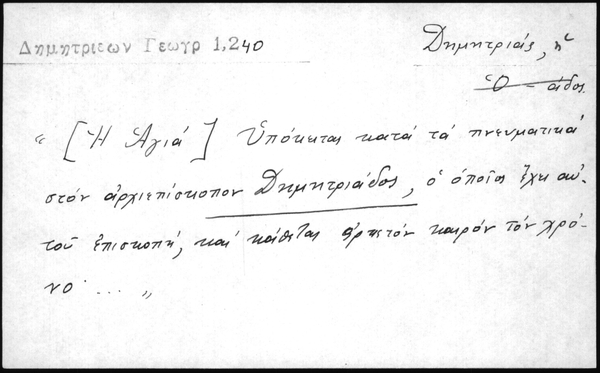 Δημητριεων Γεωγρ 1,240
Δημητριάς, ἡ
Ὁ – άδος
"[Ἡ Ἁγιά] Ὑπόκειται κατά τά πνευματικά
στόν ἀρχιεπίσκοπον Δημητριάδος, ὁ ὁποῖος ἔχει αὐ-
τοῦ ἐπισκοπή, καί κάθεται ἀρκετόν καιρόν τόν χρό-
νο... "